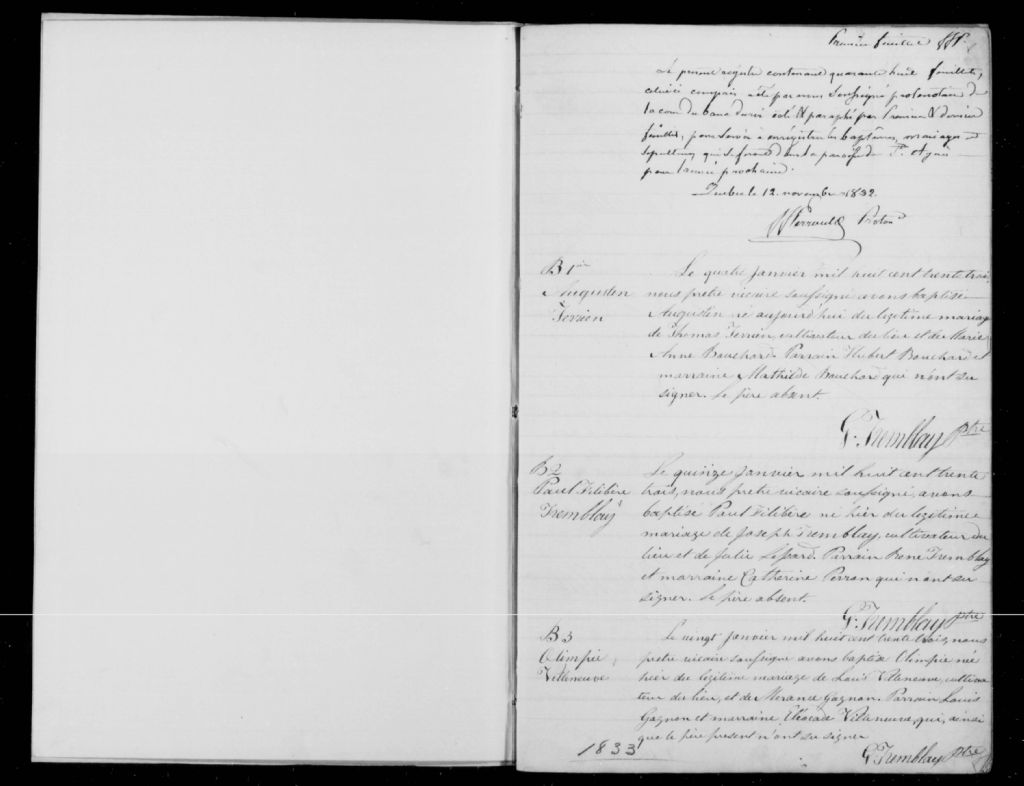 Premier feuillet JFP.
Le présent régistre contenant quarante huit feuillets,
celui ci compris a été par nous soussigné protonotaire de
la cour du banc du roi coté & paraphé par Premier & dernier
feuillet, pour servir à enrégistrer les baptêmes, mariages
sépultures qui se feront dans la paroisse de
pour l'année prochaine.
Quebec le 12. novembre 1832.
Perrault Proton
B 1
Augustin
Terrien
Le quatre janvier mil huit cent trente trois,
nous prêtre vicaire soussigné avons baptisé
Augustin né aujourd'hui du légitime mariage
de Thomas Terrien, cultivateur du lieu et de Marie
Anne Bouchard. Parrain Hubert Bouchard et
marraine Mathilde Bouchard qui n'ont su
signer. Le père absent.
G. Tremblay Ptre
B 2
Paul Filibère
Tremblay
Le quinze janvier mil huit cent trente
trois, nous prêtre vicaire soussigné, avons
baptisé Paul Filibère né hier du légitime
mariage de Joseph Tremblay, cultivateur du
lieu et de Julie Simard. Parrain René Tremblay
et marraine Catherine Perron qui n'ont su
signer. Le père absent.
G. Tremblay Ptre
B 3
Olimpie
Villeneuve
Le vingt janvier mil huit cent trente trois, nous
prêtre vicaire soussigné avons baptisé Olimpie née
hier du légitime mariage de Louis Villeneuve, cultiva
teur du lieu, et de Gagnon. Parrain Louis
Gagnon et marraine Villeneuve, qui, ainsi
que le père présent n'ont su signer
G. Tremblay Ptre
1833